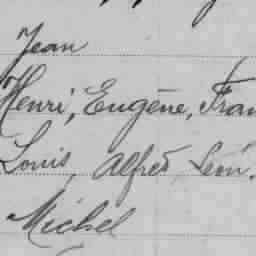 Jean
Henri, Eugène, Fran
Louis, Alfred
Michel